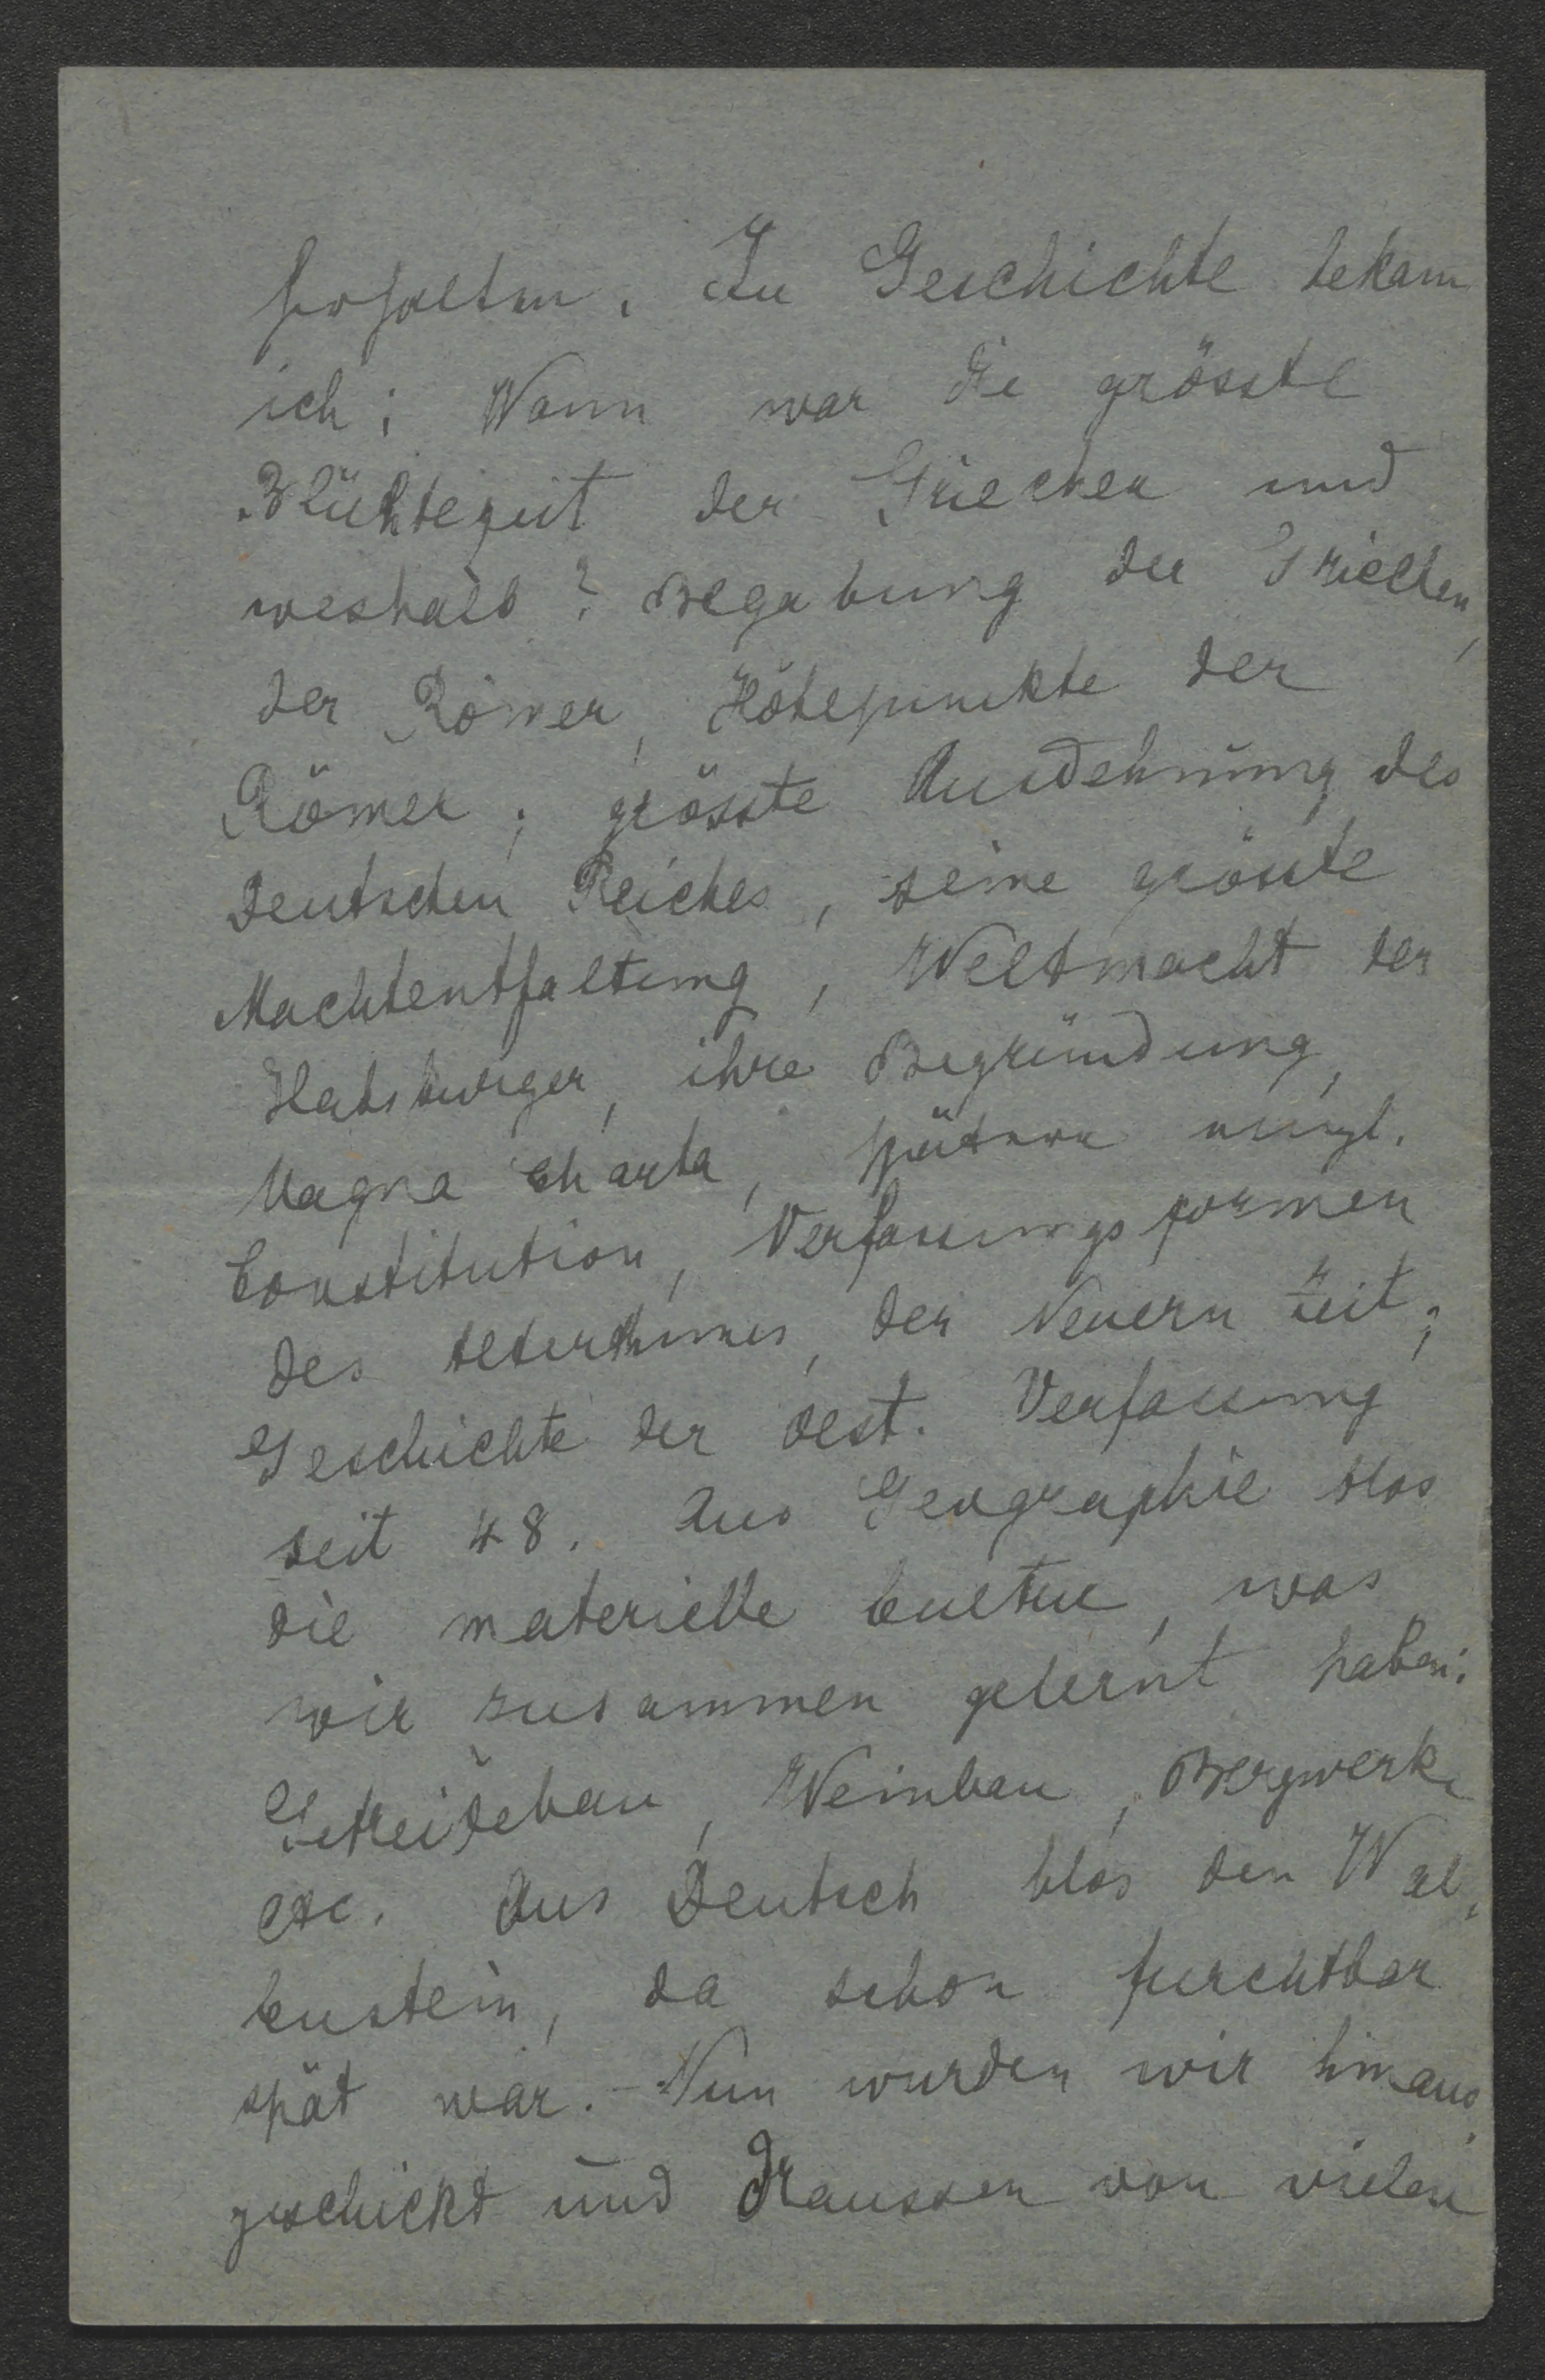 erhalten. In Geschichte bekam
ich: Wann war die grösste
Blühtezeit der Griechen und
weshalb? Begabung der Griechen,
der Römer, Höhepunkte der
Römer; grösste Ausdehnung des
Deutschen Reiches, seine grösste
Machtentfaltung, Weltmacht der
Habsburger, ihre Begründung,
Magna Charta, spätere engl.
Constitution, Verfassungsformen
des Altertumes, der Neuern Zeit;
Geschichte der oest. Verfassung
seit 48. Aus Geographie blos
die materielle Cultur, was
wir zusammen gelernt haben:
Getreidebau, Weinbau, Bergwerke
etc. Aus Deutsch blos den Wal-
lenstein, da schon furchtbar
spät war. - Nun wurden wir hinaus-
geschickt und draussen von vielen